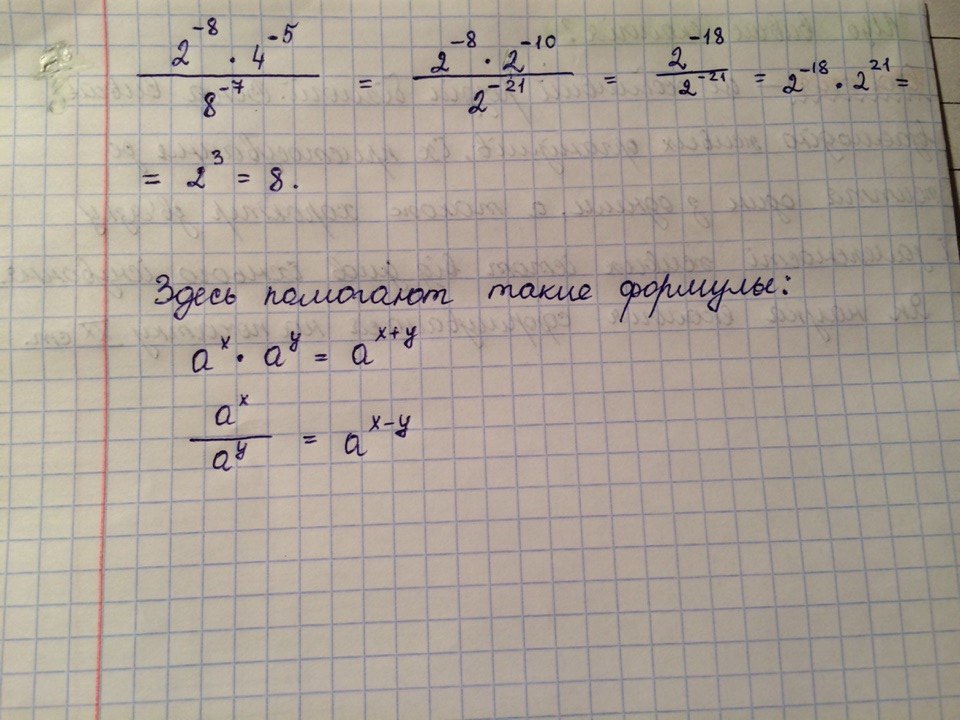 2⁻⁸ · 4⁻⁵ / 8⁻⁷ = 2⁻⁸ · 2⁻¹⁰ / 2⁻²¹ = 2⁻¹⁸ / 2⁻²¹ = 2⁻¹⁸ · 2²¹ =
= 2³ = 8.
Здесь помогают такие формулы:
aˣ · aʸ = aˣ⁺ʸ
aˣ / aʸ = aˣ⁻ʸ